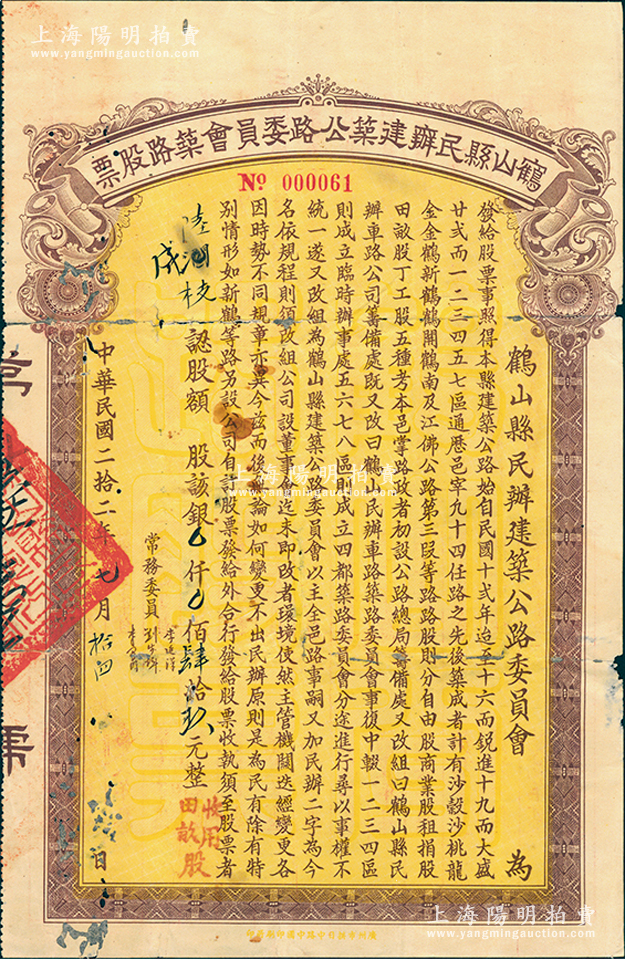 上海陽明拍賣
www.yangmingauction.com
鶴山縣民辦建築公路委員會築路股票
No 000061
鶴山縣民辦建築公路委員會 為
發給股票事照得本縣建築公路始自民國十弍年迨至十六而銳進十九而大盛
廿弍而一二三四五七區通歷邑宰九十四任路之先後築成者計有沙縠沙桃龍
金金鶴新鶴鶴開鶴南及江佛公路第三段等路路股則分自由股商業股租捐股
田畝股丁工股五種考本邑掌路政者初設公路總局籌備處又改組曰鶴山縣民
辦車路公司籌備處既又改曰鶴山民辦車路築路委員會事復中輟一二三四區
則成立臨時辦事處五六七八區則成立四都築路委員會分途進行尋以事權不
統一遂又改組為鶴山縣建築公路委員會以主全邑路事嗣又加民辦二字為今
名依規程則須改組公司設董事迄未即改者環境使然主管機關迭經變更各
因時勢不同規章亦異今茲而後無論如何變更不出民辦原則是為民有除有特
別情形如新鶴等路另設公司自訂股票發給外合行發給股票收執須至股票者
認股額 股該銀 仟 佰肆拾 元整
收用
田畝股
常務委員
中華民國二拾二年七月拾四日
上海陽明拍賣
www.yangmingauction.com
上海陽明拍賣
www.yangmingauction.com